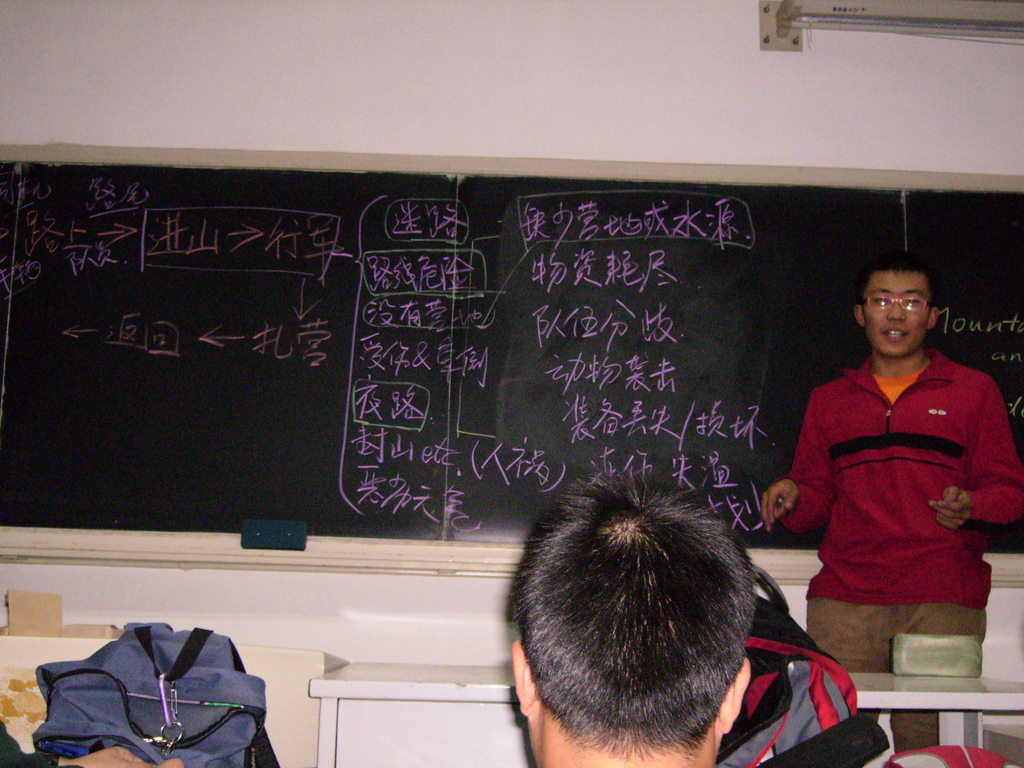 路线
路上 → 进山 → 行车
队员
← 返回 ← 扎营
迷路
路线危险
没有营地
受伤&
夜路
封山etc.(人祸)
恶劣天气
缺少营地或水源
物资耗尽
队伍分歧
动物袭击
装备丢失/损坏
冻伤 失温
Mounta
an